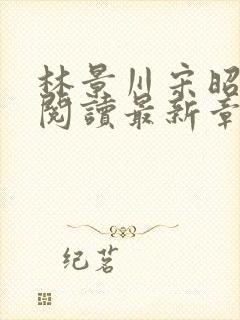 林景川宋昭
閱讀最新章
纪茗